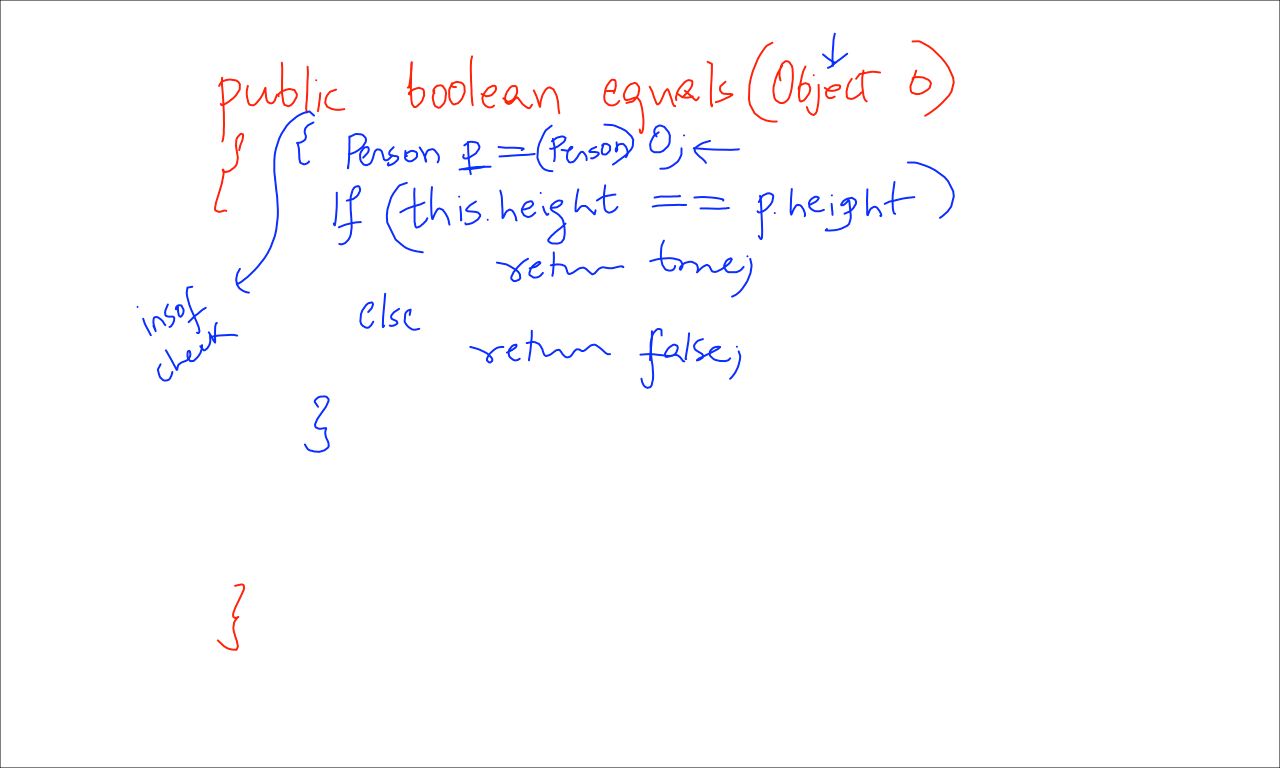 public boolean equals(Object o)
{
{ Person p = (Person) O; ←
If (this.height == p.height)
return true;
else
return false;
insof
check
}
}